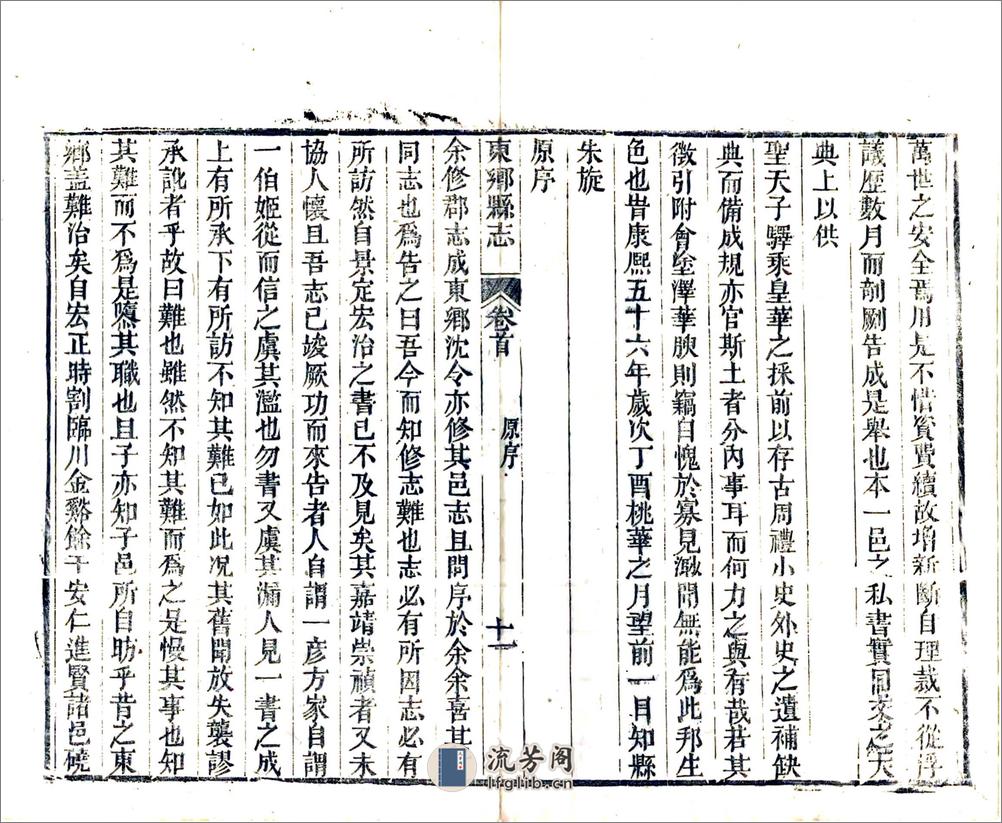 萬世之安全焉用是不惜資費續故增新斷自理裁不從浮
議歷數月而剞劂告成是舉也本一邑之私書實同文之大
典上以供
聖天子驛乘皇華之採前以存古周禮小史外史之遺補缺
典而備成規亦官斯土者分內事耳而何力之與有哉若其
徵引附會塗澤華腴則竊自愧於寡見淈聞無能爲此邦生
色也旹康熙五十六年歲次丁酉桃華之月望前一日知縣
朱旋
原序
東鄉縣志 卷首 原序 十一
余修郡志成東鄉沈令亦修其邑志且問序於余余喜其
同志也爲告之曰吾今而知修志難也志必有所因志必有
所訪然自景定宏治之書已不及見矣其嘉靖崇禎者又未
協人懷且吾志已竣厥功而來告者人自謂一彥方家自謂
一伯姬從而信之虞其濫也勿書又虞其漏人見一書之成
上有所承下有所訪不知其難已如此况其舊聞放失襲謬
承訛者乎故曰難也雖然不知其難而爲之是慢其事也知
其難而不爲是隳其職也且子亦知子邑所自昉乎昔之東
鄉盖難治矣自宏正時割臨川金谿餘干安仁進賢諸邑磽
流芳阁
lfglib.cn